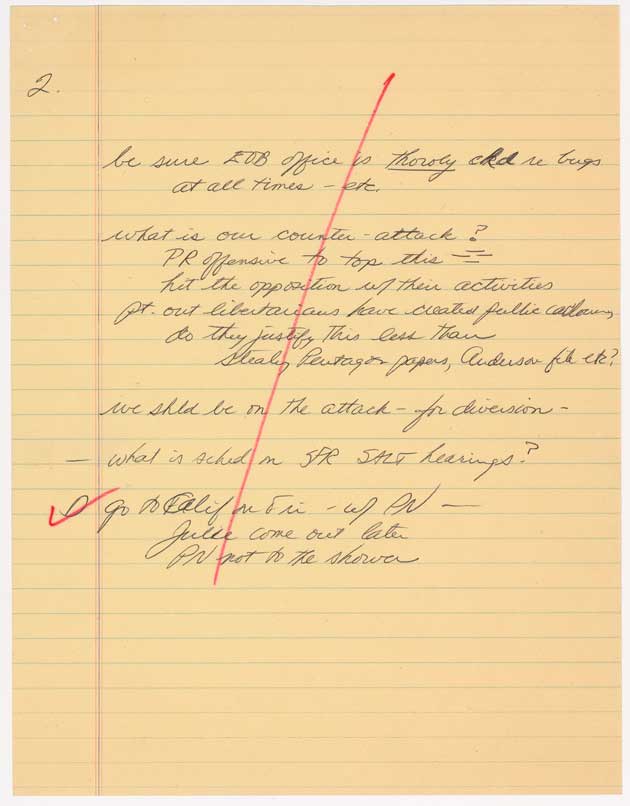 2.
be sure EOB office is thoroly ckd re bugs
at all times - etc.
what is our counter-attack?
PR offensive to top this
hit the opposition w/ their activities
pt. out libertarians have created public
do they justify this less than
stealing Pentagon papers, Anderson file etc?
we shld be on the attack - for diversion -
— what is sched on SFR SALT hearings?
go to Calif on Fri - w/ PN —
Julie come out later
PN not to the shower